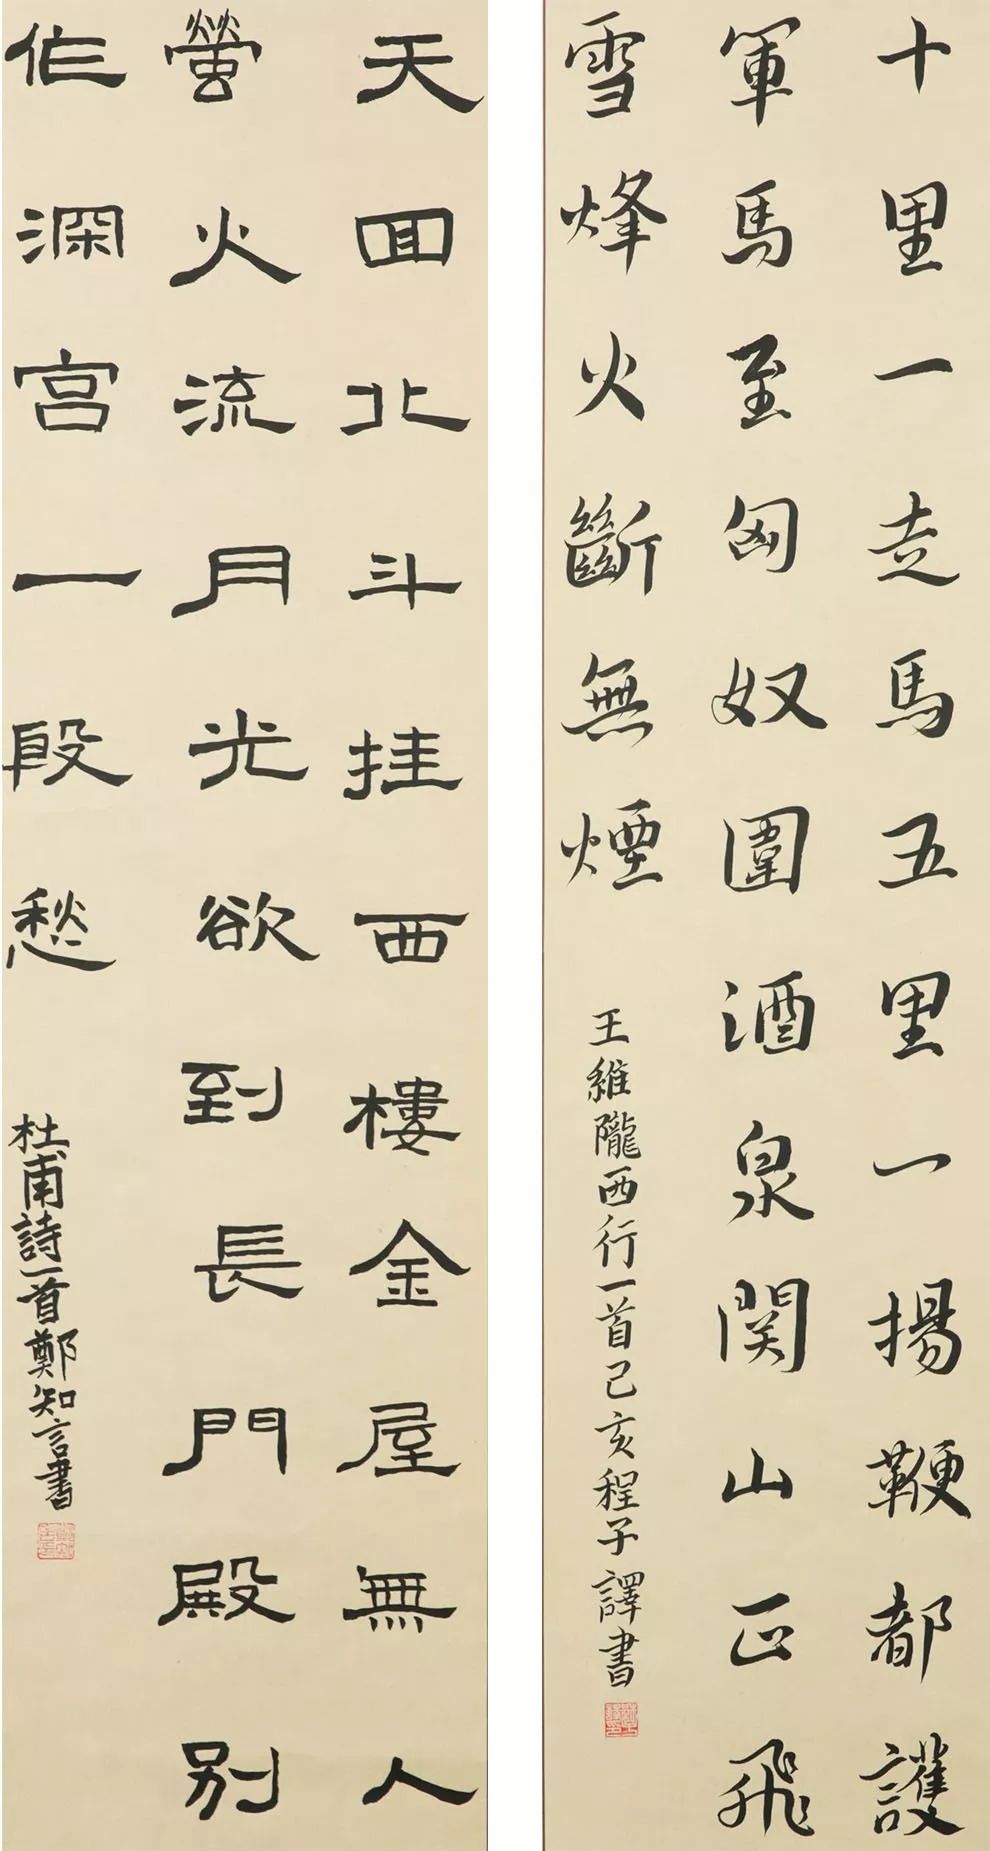 十里一走馬五里一揚鞭都護
軍馬至匈奴圍酒泉関山正飛
雪烽火斷無煙
王維隴西行一首己亥程子譯書
天回北斗挂西樓金屋無人
螢火流月光欲到長門殿別
作深宮一段愁
杜甫詩一首鄭知言書